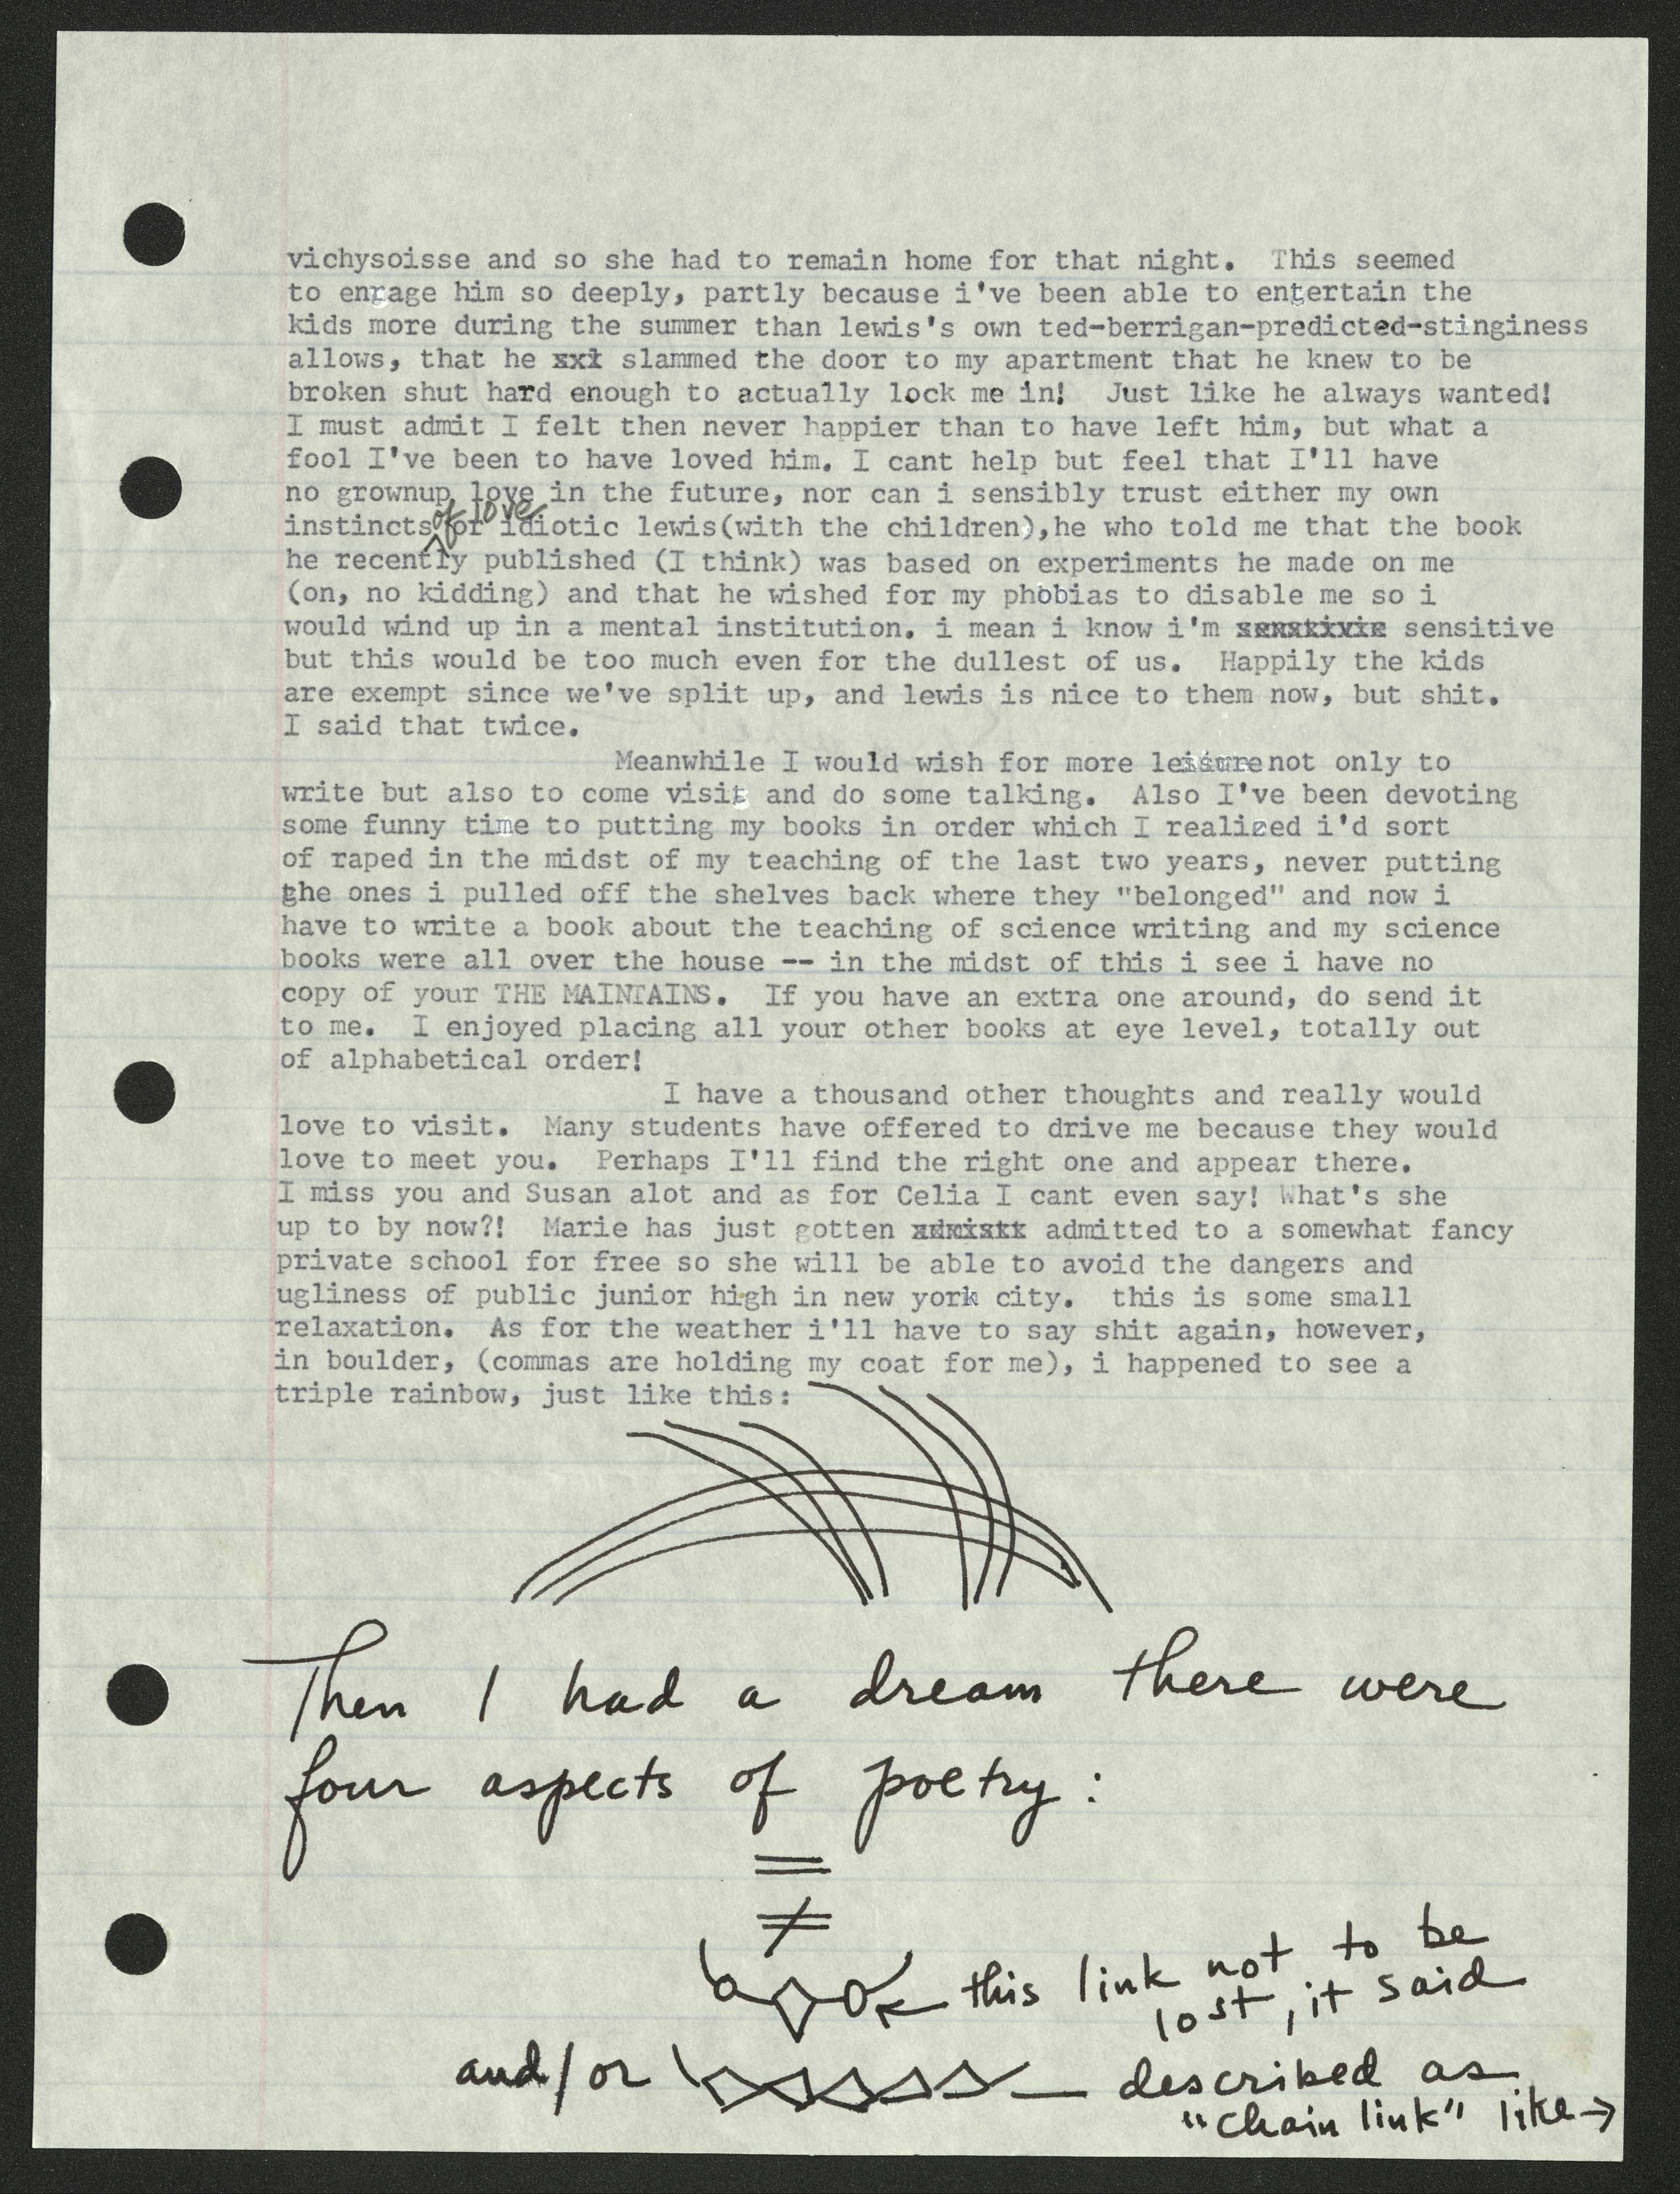 vichysoisse and so she had to remain home for that night.  This seemed
to enrage him so deeply, partly because i've been able to entertain the
kids more during the summer than lewis's own ted-berrigan-predicted-stinginess
allows, that he xxx slammed the door to my apartment that he knew to be
broken shut hard enough to actually lock me in!  Just like he always wanted!
I must admit I felt then never happier than to have left him, but what a
fool I've been to have loved him. I cant help but feel that I'll have
no grownup love in the future, nor can i sensibly trust either my own
of love
instincts for idiotic lewis(with the children),he who told me that the book
he recently published (I think) was based on experiments he made on me
(on, no kidding) and that he wished for my phobias to disable me so i
would wind up in a mental institution. i mean i know i'm sensitive
but this would be too much even for the dullest of us.  Happily the kids
are exempt since we've split up, and lewis is nice to them now, but shit.
I said that twice.
Meanwhile I would wish for more leisure not only to
write but also to come visit and do some talking.  Also I've been devoting
some funny time to putting my books in order which I realized i'd sort
of raped in the midst of my teaching of the last two years, never putting
the ones i pulled off the shelves back where they "belonged" and now i
have to write a book about the teaching of science writing and my science
books were all over the house -- in the midst of this i see i have no
copy of your THE MAINTAINS.  If you have an extra one around, do send it
to me.  I enjoyed placing all your other books at eye level, totally out
of alphabetical order!
I have a thousand other thoughts and really would
love to visit.  Many students have offered to drive me because they would
love to meet you.  Perhaps I'll find the right one and appear there.
I miss you and Susan alot and as for Celia I cant even say! What's she
up to by now?!  Marie has just gotten admitted to a somewhat fancy
private school for free so she will be able to avoid the dangers and
ugliness of public junior high in new york city.  this is some small
relaxation.  As for the weather i'll have to say shit again, however,
in boulder, (commas are holding my coat for me), i happened to see a
triple rainbow, just like this:
Then I had a dream there were
four aspects of poetry:
=
≠
this link not to be
lost, it said
and/or
described as
"chain link" like→